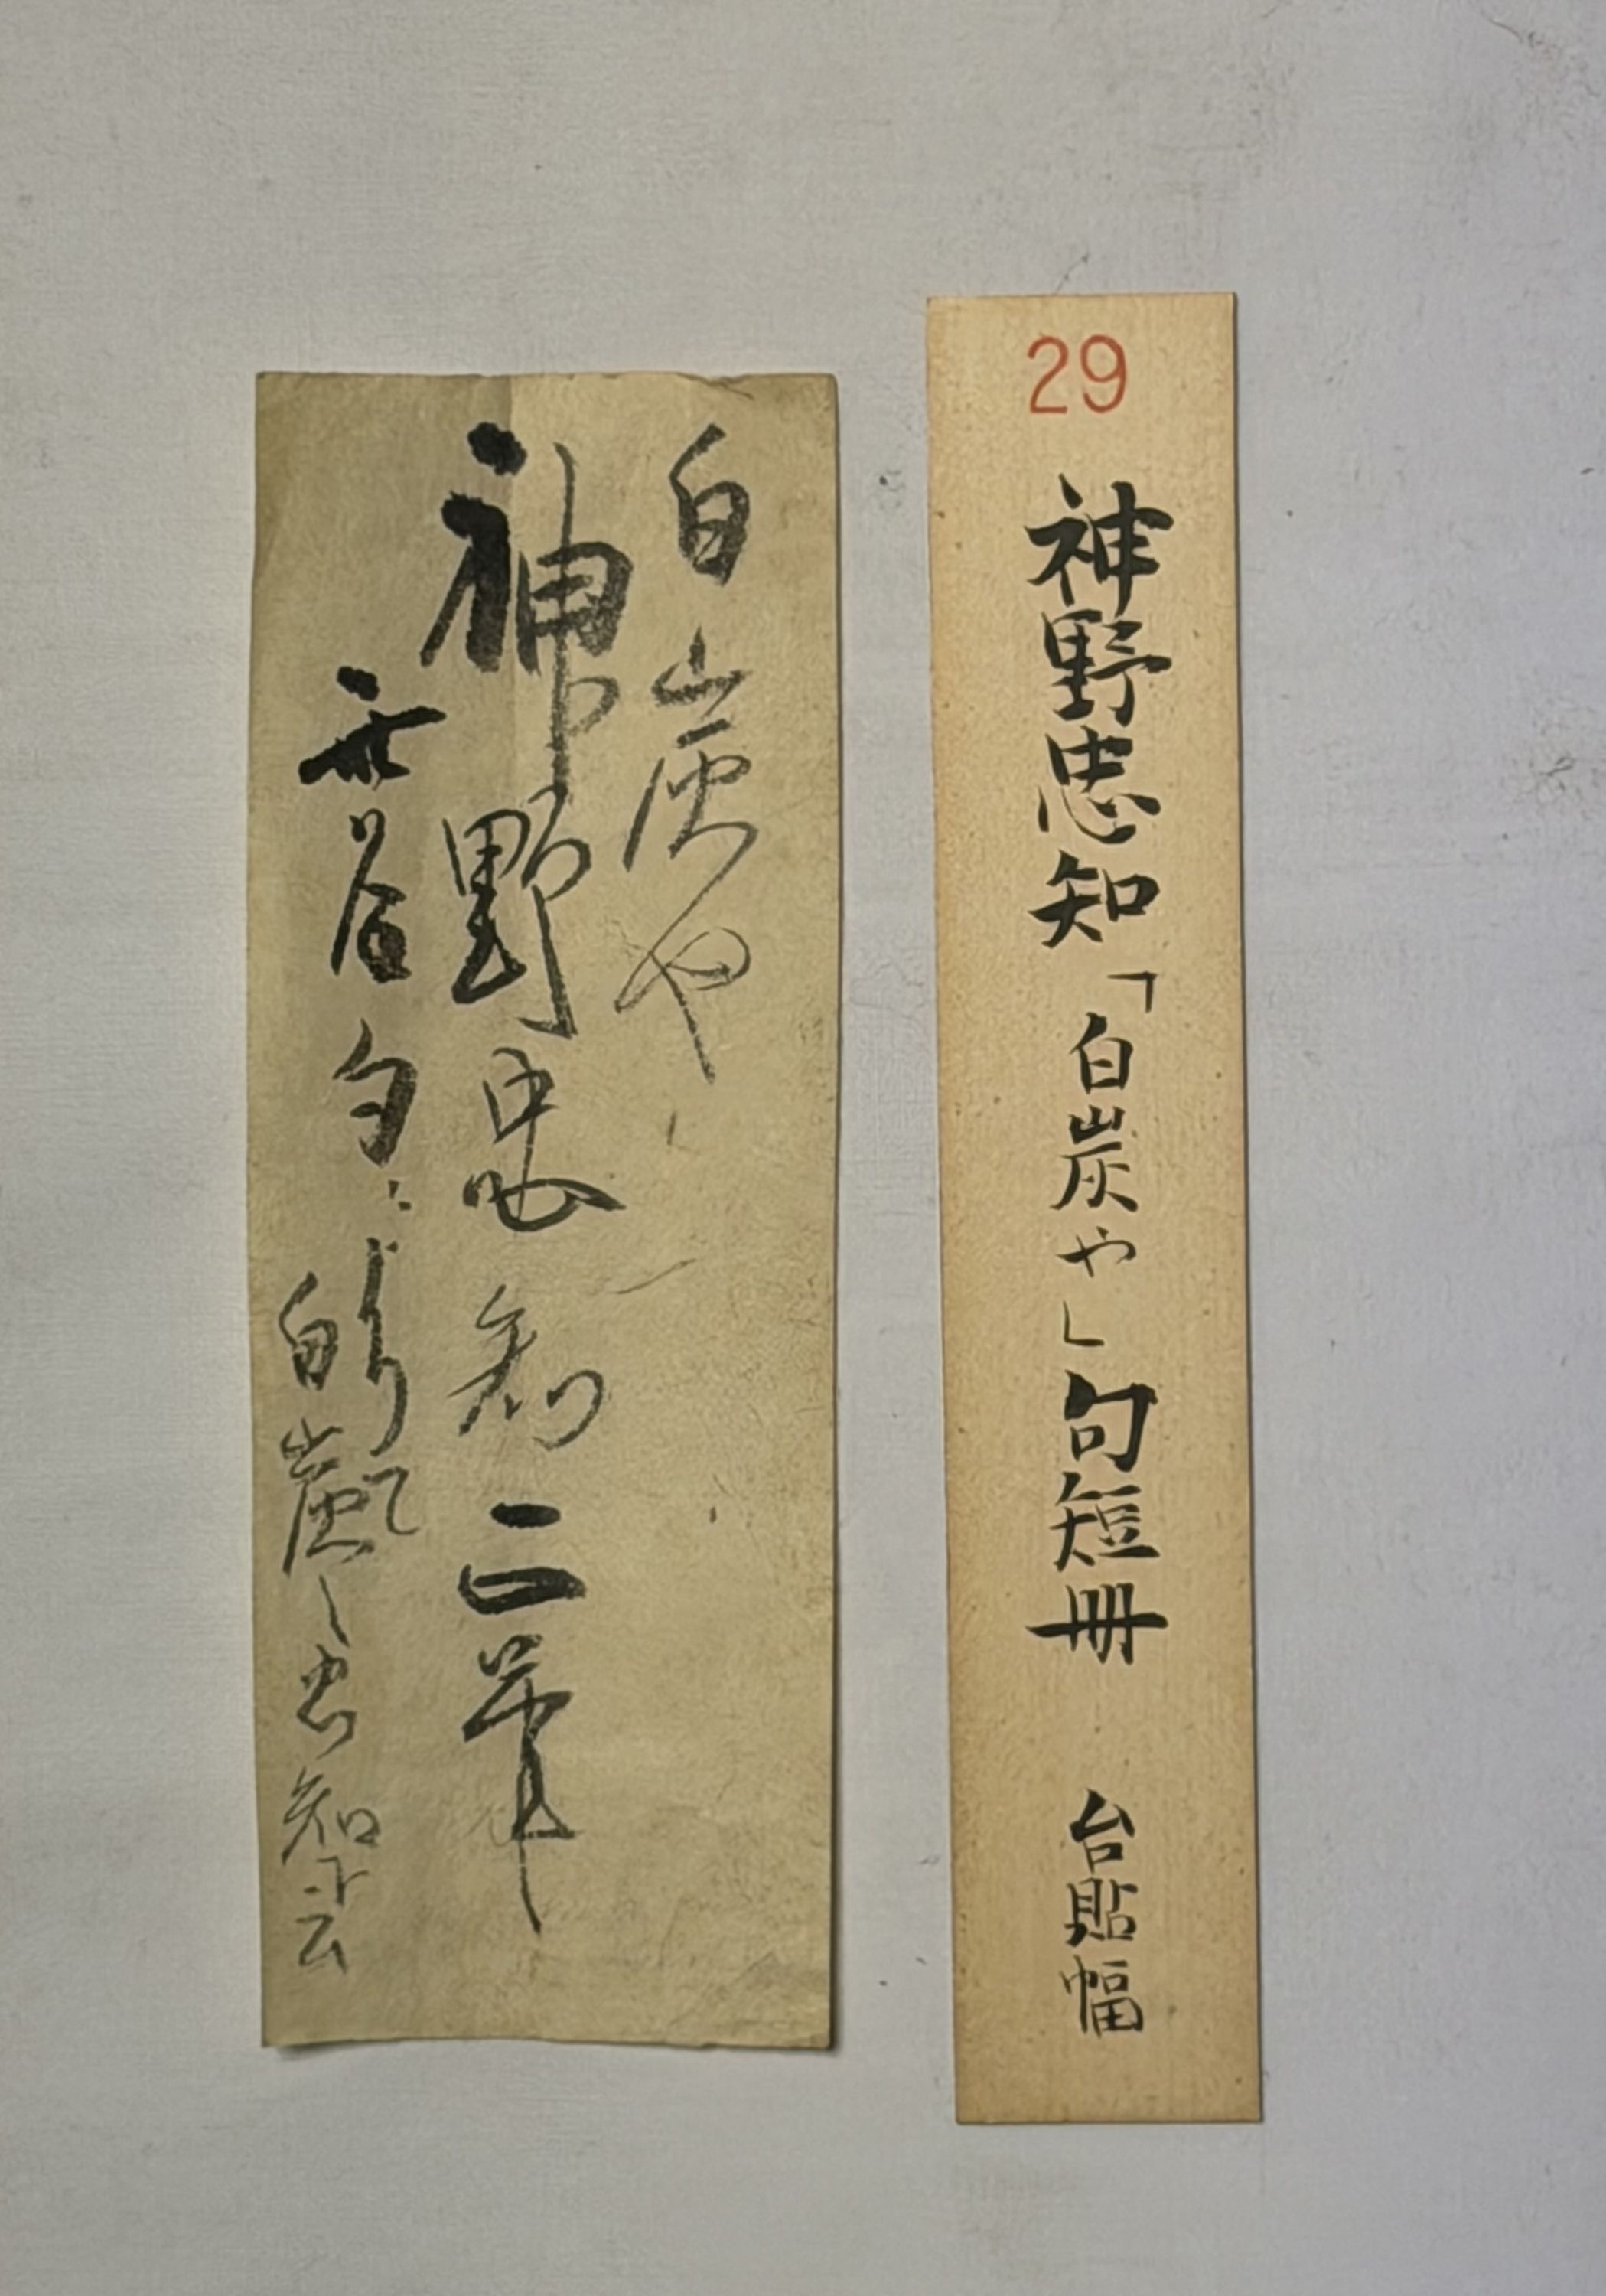 29
神野忠知「白炭や」句短冊 台貼幅
白炭や
神野忠知正筆
句ニよりて
白炭ノ忠知ト云